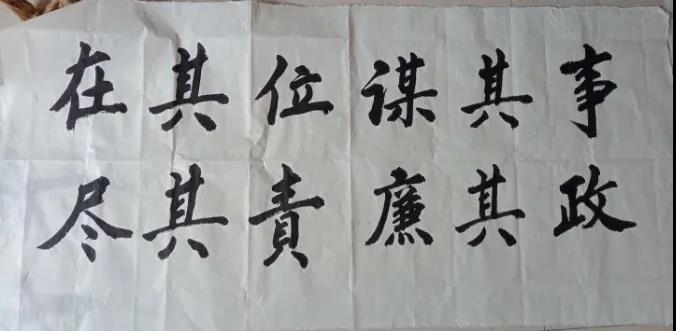 在其位谋其事
尽其責廉其政